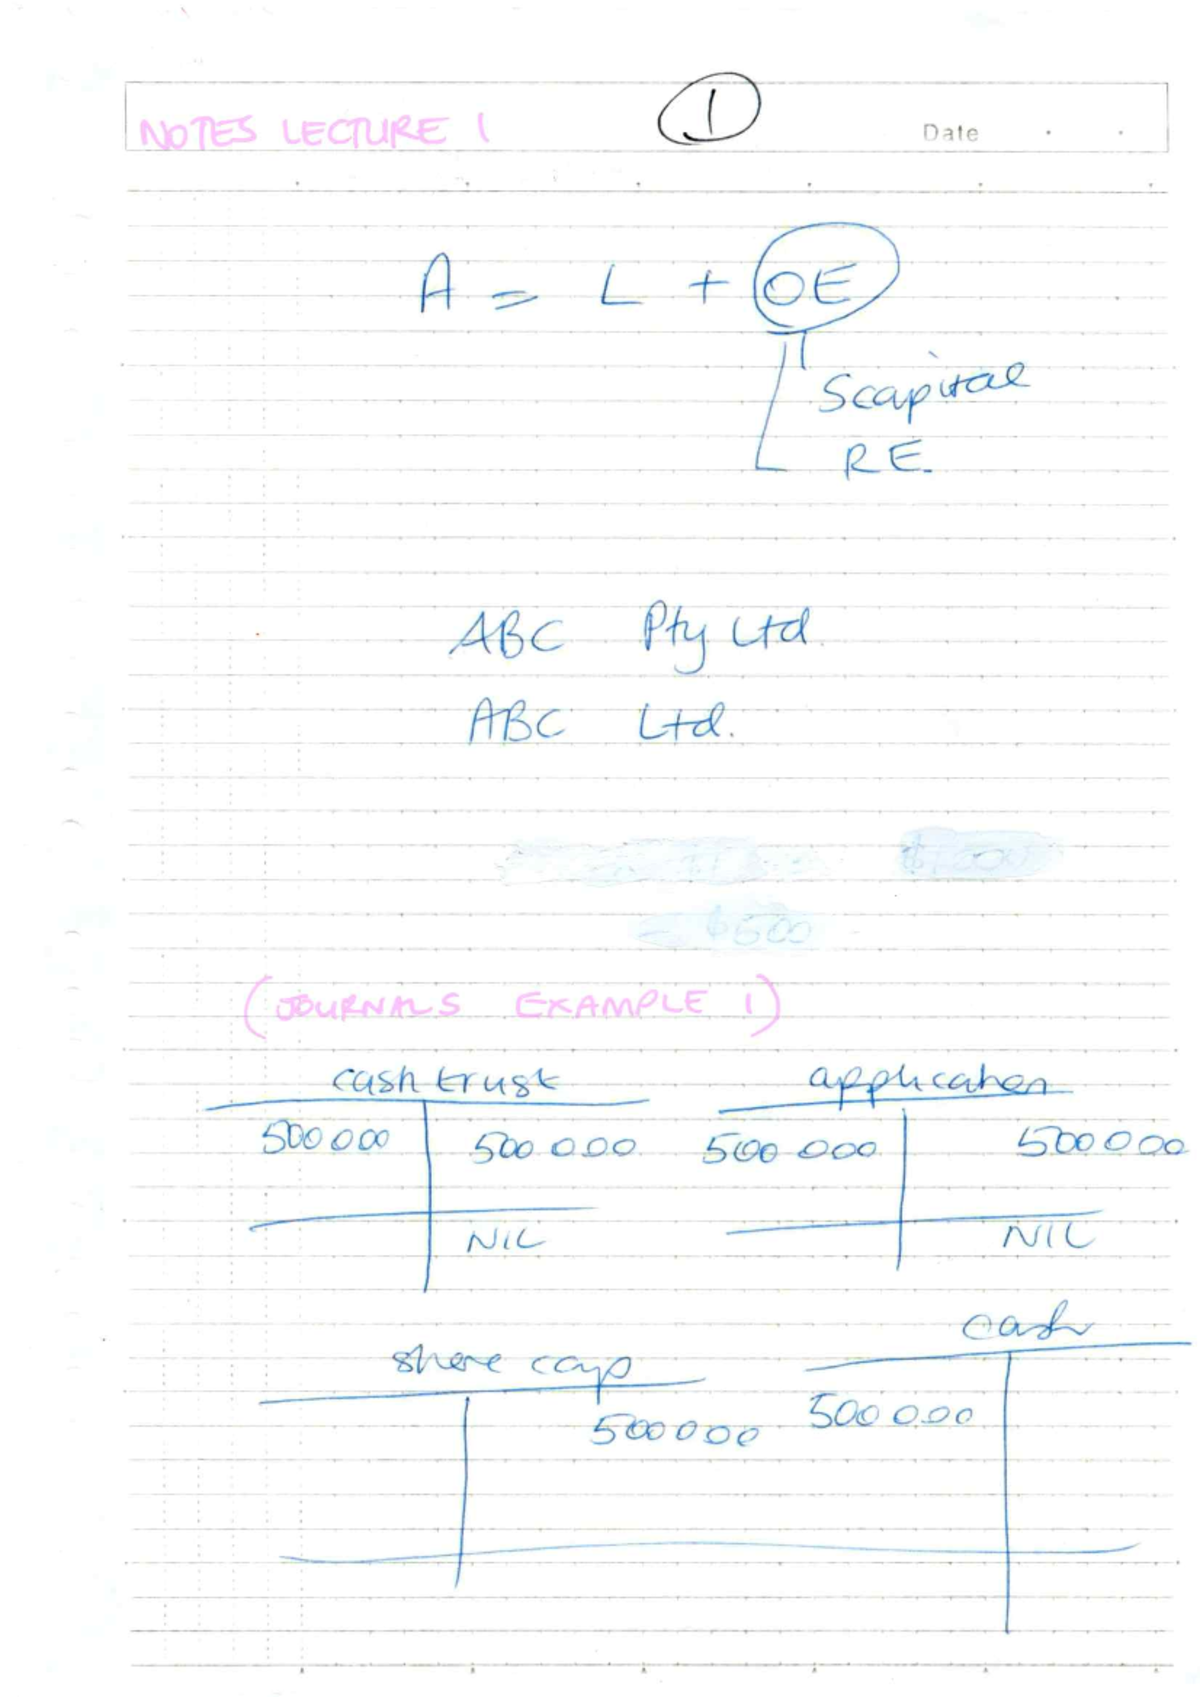 NOTES LECTURE 1
1
Date
A = L + OE
Scapital
RE.
ABC Pty Ltd.
ABC Ltd.
$500
(JOURNALS EXAMPLE 1)
cash trust application
500 000 500 000 500 000 500 000
NIL NIL
cash
share cap
500 000 500 000